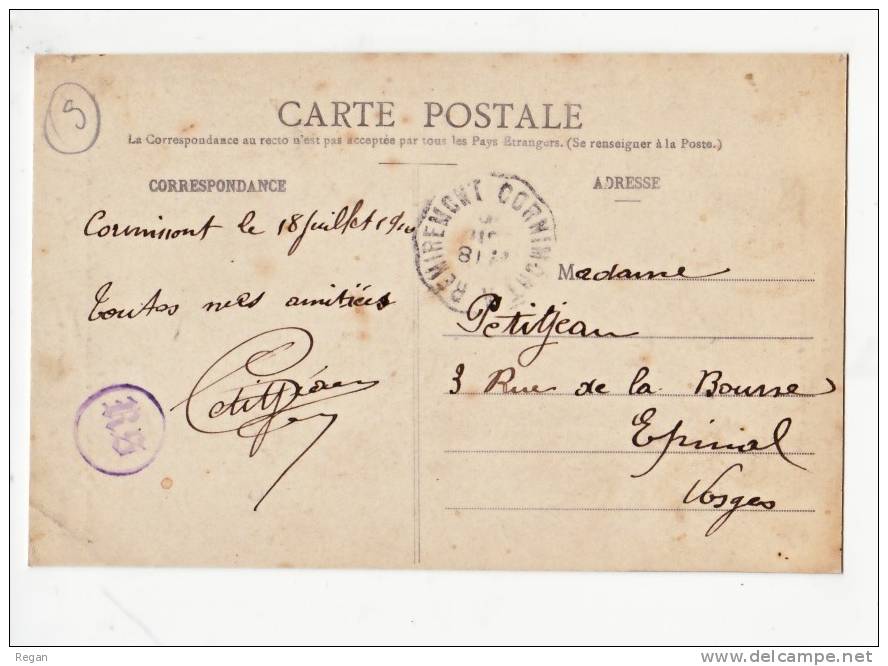 9
CARTE POSTALE
La Correspondance au recto n'est pas acceptée par tous les Pays Etrangers. (Se renseigner à la Poste.)
CORRESPONDANCE
Cornimont le 18 Juillet 1910
Toutes mes amitiés
Petitjean
RS
REMIREMONT CORNIMONT
18
ADRESSE
Madame
Petitjean
3 Rue de la Bourse
Epinal
Vosges
Regan
www.delcampe.net